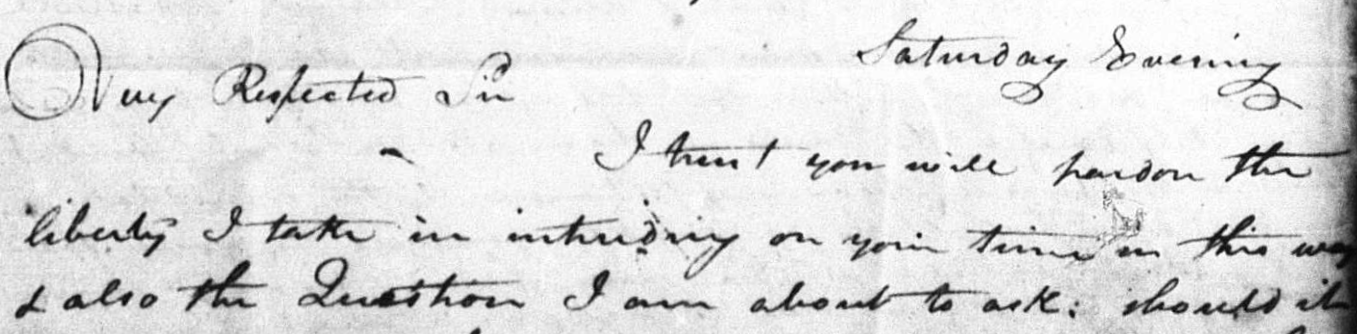 Saturday Evening
Very Respected Sir
I trust you will pardon the
liberty I take in intruding on your time in this way
& also the Question I am about to ask: should it